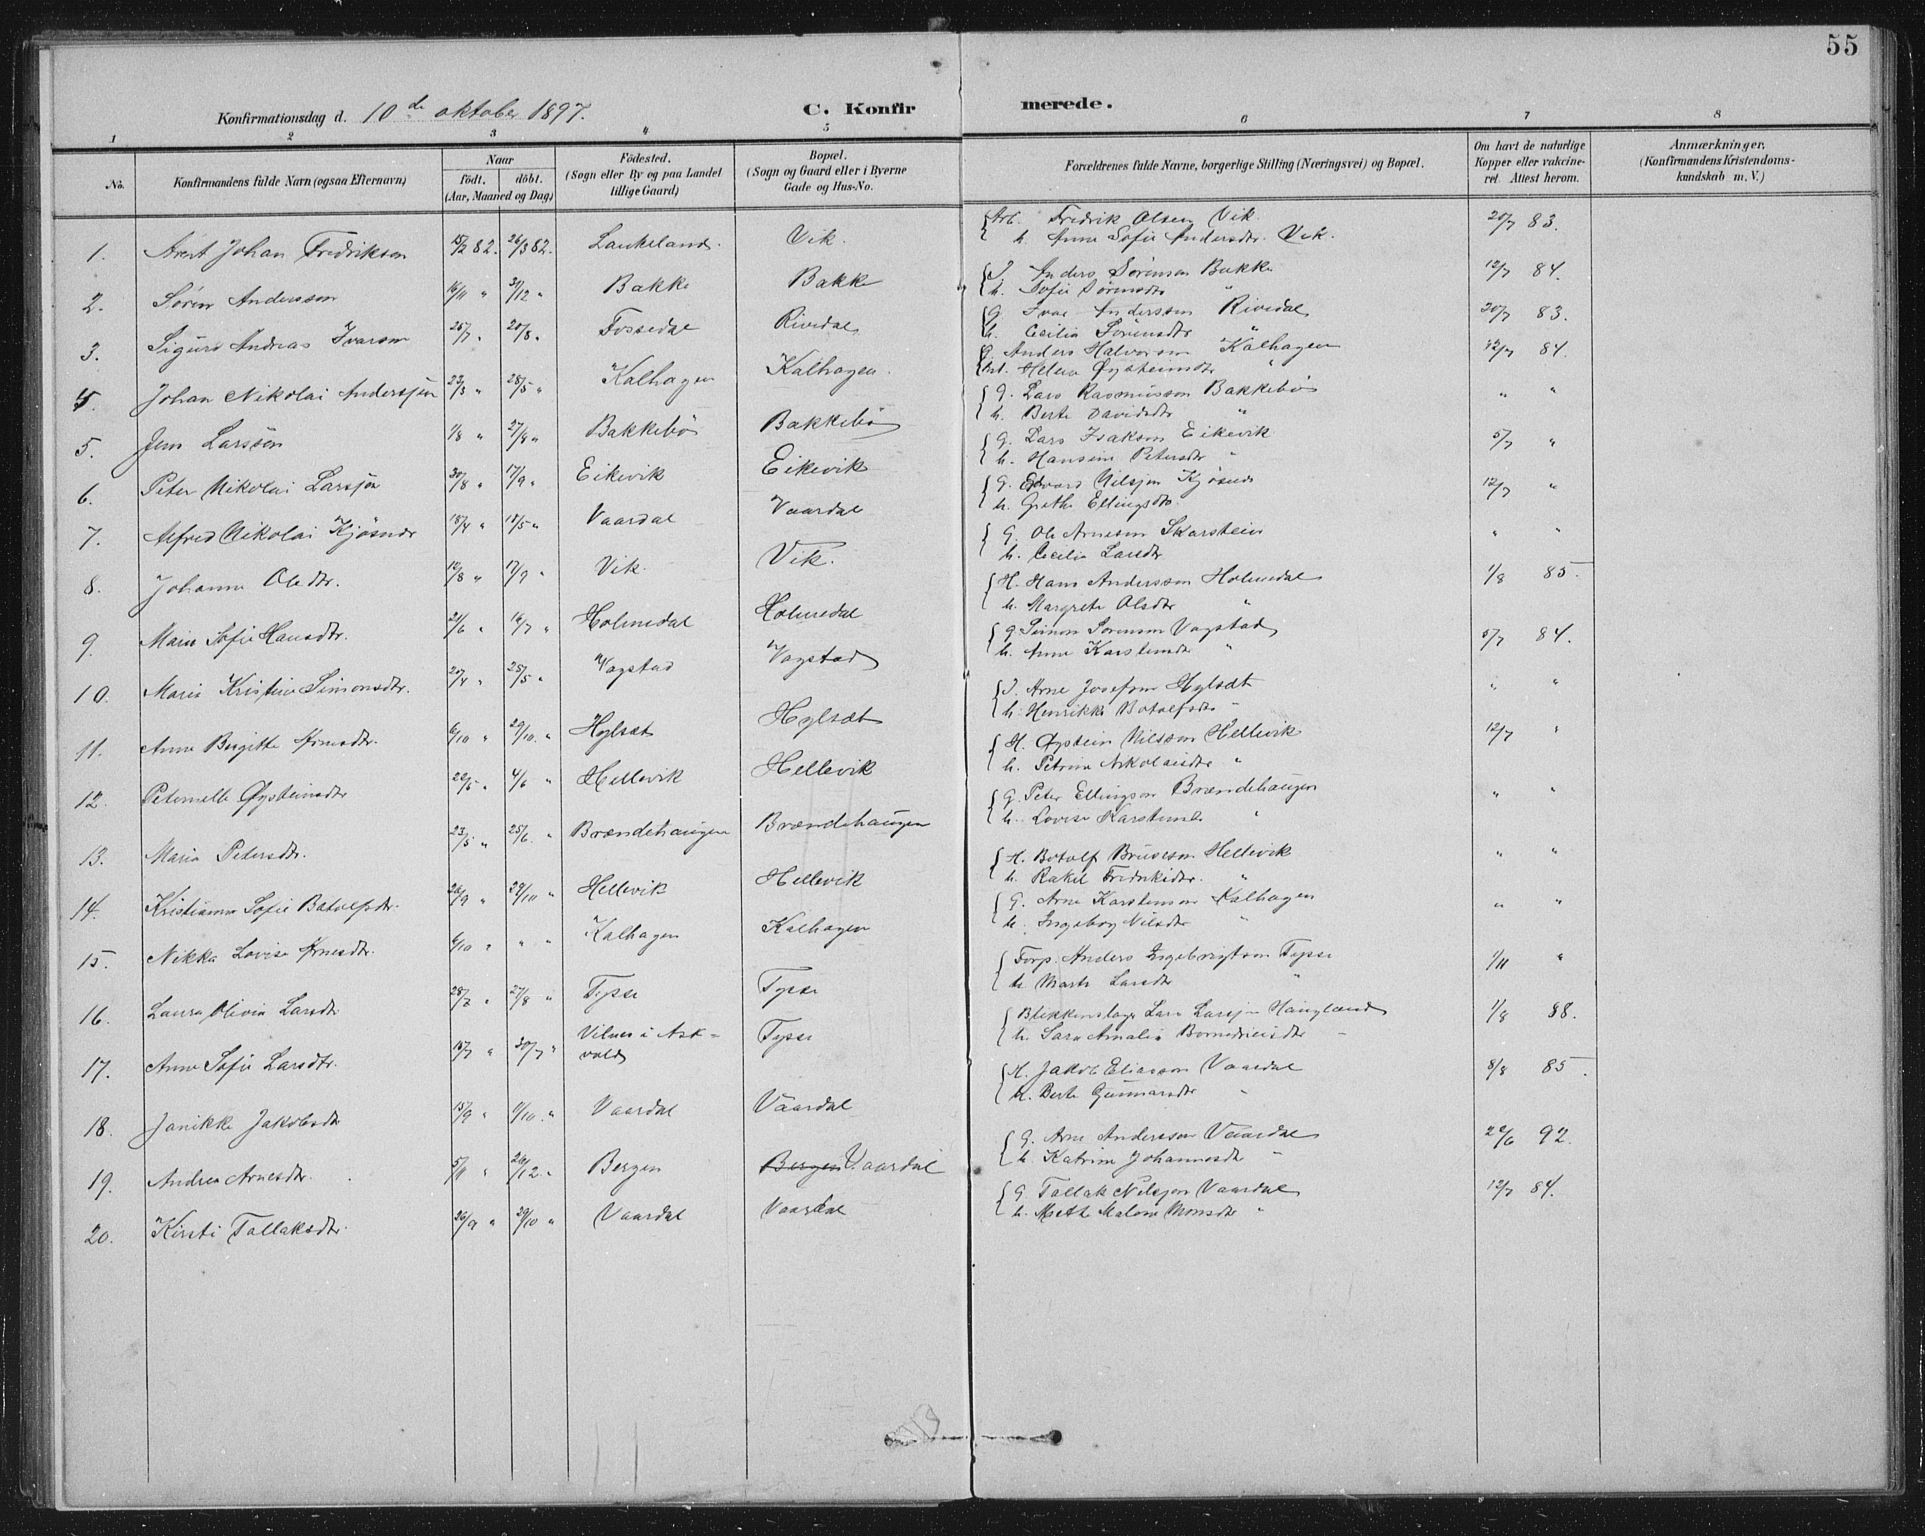 55
Konfirmationsdag d. 10de oktober 1897.
C. Konfirmerede.
1 2 3 4 5 6 7 8
No.
Konfirmandens fulde Navn (ogsaa Efternavn)
Naar
födt. döbt.
(Aar, Maaned og Dag)
Födested.
(Sogn eller By og paa Landet
tillige Gaard)
Bopæl.
(Sogn og Gaard eller i Byerne
Gade og Hus-No.
Forældrenes fulde Navne, borgerlige Stilling (Næringsvei) og Bopæl.
Om havt de naturlige
Kopper eller vakcine-
ret. Attest herom.
Anmærkninger.
(Konfirmandens Kristendoms-
kundskab m. V.)
1. Arent Johan Fredriksen 15/2 82. 26/3 82. Laukeland. Vik. Arb. Fredrik Olsen Vik 20/7 83.
h. Anne Sofie Andersdtr. Vik.
2. Søren Anderssen 16/11 " 31/12 " Bakke Bakke I. Anders Sørensen Bakke 12/7 84.
h. Sofie Sørensdtr "
3. Sigurd Andreas Ivarsen 25/7 " 20/8 " Fossedal Rivedal G. Ivar Anderssen Rivedal 20/7 83.
h. Cecilia Sørensdtr "
4. Johan Nikolai Anderssøn 23/3 " 28/5 " Kalhagen Kalhagen. G. Anders Halvorsen Kalhagen 12/7 84.
Helene Øysteinsdtr "
5. Jens Larssön 1/8 " 27/8 " Bakkebö Bakkebö G. Lars Rasmussen Bakkebö " "
h. Berte Davidsdtr "
6. Peter Nikolai Larssøn 30/8 " 17/9 " Eikevik Eikevik G. Lars Isaksen Eikevik 5/7 "
h. Hansine Petersdtr "
7. Alfred Nikolai Kjösnes 18/4 " 18/5 " Vaardal Vaardal G. Edvard Nilssen Kjøsnes 12/7 "
h. Grethe Ellingsdtr
8. Johanne Olsdtr. 12/8 " 17/9 " Vik. Vik. G. Ole Arnesen Skarstein " "
h. Cecilie Larsdtr
9. Marie Sofie Hansdtr. 21/6 " 16/7 " Holmedal Holmedal H. Hans Anderssen Holmedal 1/8 85.
h. Margrete Olsdtr "
10. Maria Kristine Simonsdtr. 20/4 " 28/5 " Vagstad Vagstad G. Simon Sørensen Vagstad 5/7 84.
h. Anne Karstensdtr "
11. Anne Birgitte Arnesdtr. 6/10 " 29/10. " Hylsæt Hylsæt I. Arne Josefsen Hylsæt " "
h. Henrikke Botolfsdtr "
12. Peternelle Øysteinsdtr 22/5 " 4/6 " Hellevik Hellevik H. Øystein Nilssen Hellevik 12/7 "
h. Petrine Nikolaisdtr "
13. Maria Petersdtr. 23/5 " 25/6 " Brændehaugen Brændehaugen G. Peter Ellingson Brændehaugen " "
h. Lovise Karstensd. "
14. Kristianne Sofie Botolfsdtr. 26/9 " 29/10 " Hellevik Hellevik H. Botolf Bruseson Hellevik " "
h. Rakel Fredrikkdtr. "
15. Nikka Lovise Arnesdtr. 6/10 " " " Kalhagen Kalhagen G. Arne Karstensen Kalhagen " "
h. Ingeborg Nilsdtr "
16. Laura Olivia Larsdtr 28/7 " 27/8 " Tysse Tysse Forp. Anders Ingebrigtsen Tysse 1/11 "
h. Marte Larsdtr "
17. Anne Sofie Larsdtr. 15/7 " 30/7 " Vilnes i Ask- Tysse Blikkenslager Lars Larssen Haugland 1/8 88.
vold h. Sara Amalia "
18. Janikke Jakobsdtr 15/9 " 1/10. " Vaardal Vaardal H. Jakob Eliasson Vaardal 8/8 85.
h. Berte Gunnarsdtr "
19. Andrea Arnesdtr. 5/11 " 26/12. " Bergen Bergen Vaardal G. Arne Anderssen Vaardal 22/6 92.
h. Katrine Johannesdtr "
20. Kirsti Tollaksdtr. 26/9 " 29/10 " Vaardal Vaardal G. Tollak Nilssen Vaardal 12/7 84.
h. Marthe Malene Monsdtr "